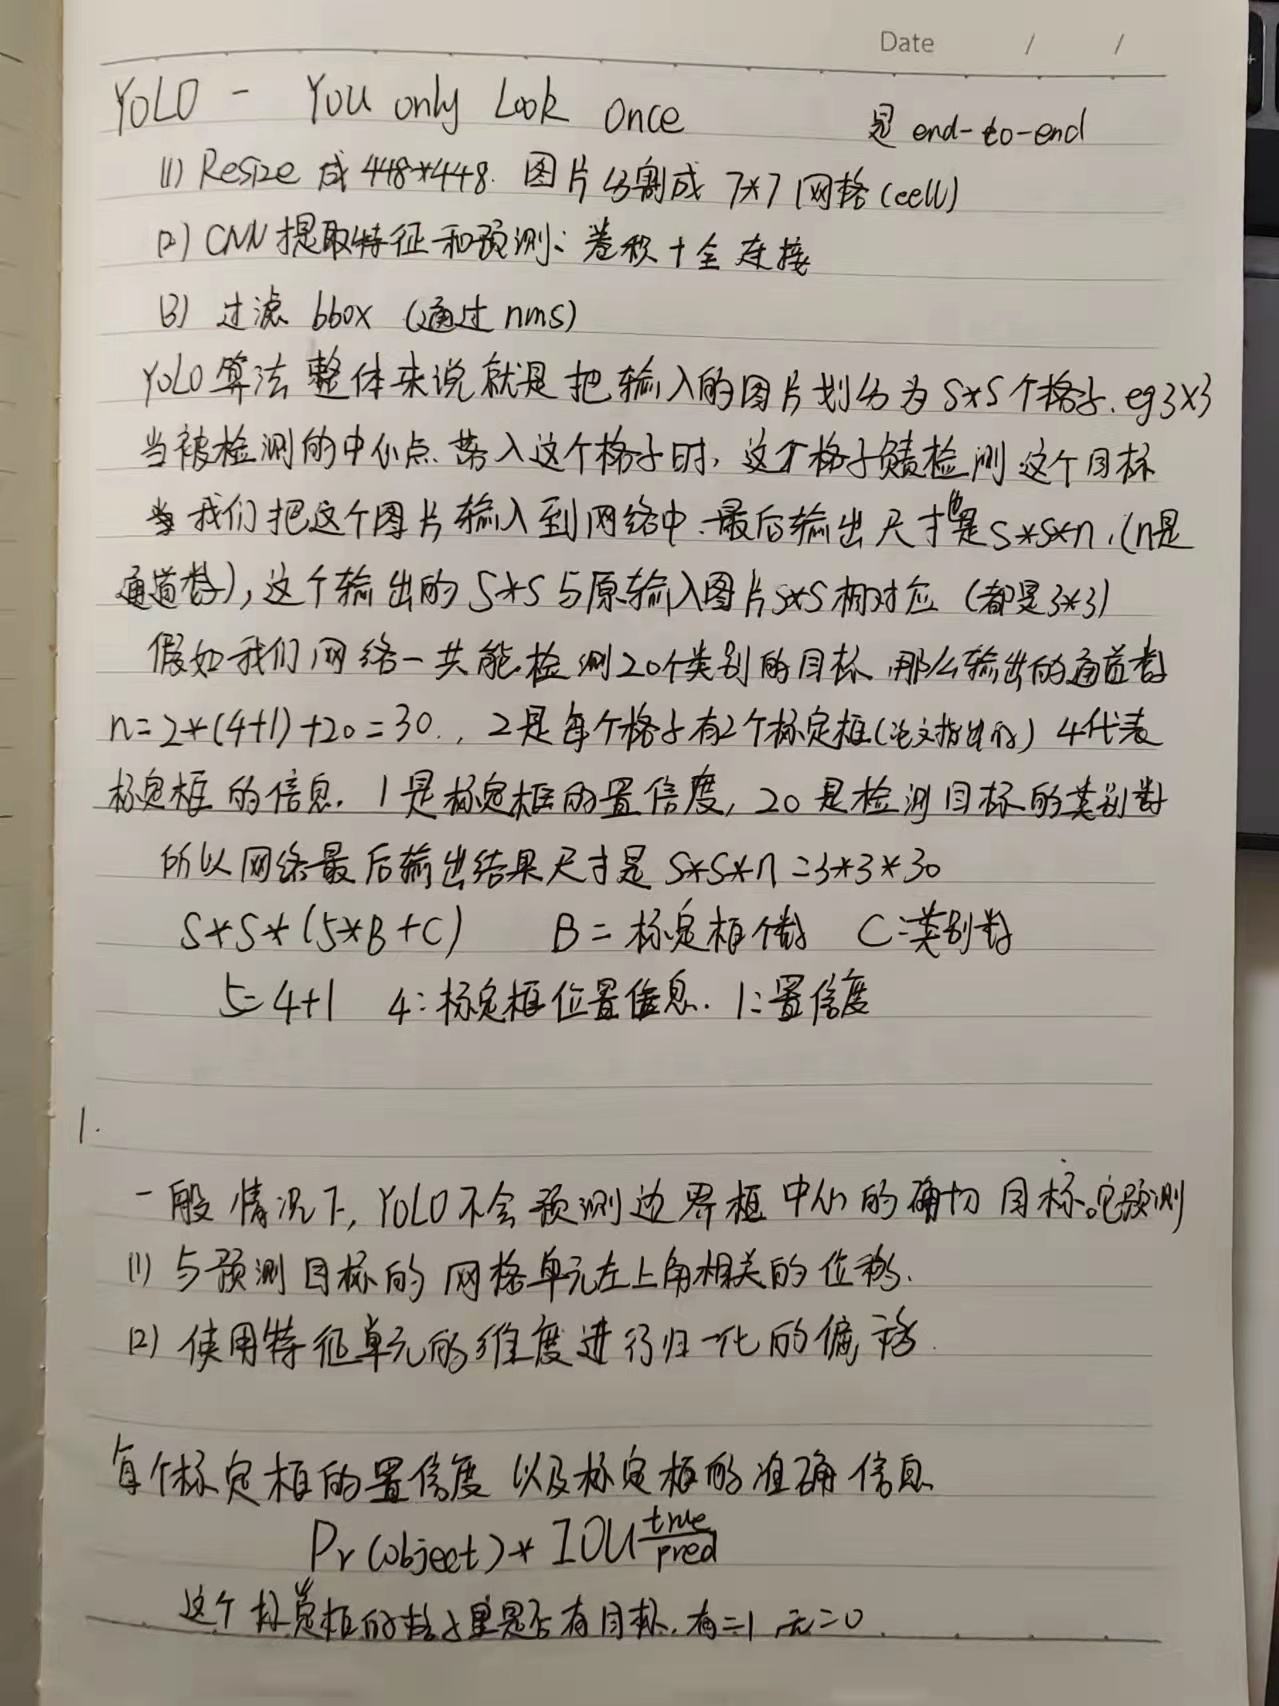 Date / /
YOLO - You only Look Once 是 end-to-end
(1) Resize 成 448*448. 图片分割成 7*7 网格 (cell)
(2) CNN 提取特征和预测: 卷积+全连接
(3) 过滤 bbox (通过 nms)
YOLO 算法 整体来说就是把输入的图片划分为 S*S 个格子. eg 3×3
当被检测的中心点 落入这个格子时, 这个格子负责检测 这个目标
当我们把这个图片输入到网络中. 最后输出尺寸也是 S*S*n. (n是
通道数), 这个输出的 S*S 与原输入图片 S*S 相对应 (都是 3*3)
假如我们网络一共能检测20个类别的目标 那么输出的通道数
n=2*(4+1)+20=30., 2是每个格子有2个标定框(论文指出的) 4代表
标定框的信息. 1是标定框的置信度, 20是检测目标的类别数
所以网络最后输出结果尺寸是 S*S*n=3*3*30
S*S*(5*B+C) B= 标定框个数 C:类别数
5=4+1 4:标定框位置信息. 1:置信度
1.
一般情况下, YOLO不会预测边界框中心的确切目标。它预测
(1) 与预测目标的网格单元左上角相关的位移.
(2) 使用特征单元的维度进行归一化的偏移.
每个标定框的置信度 以及标定框的准确信息
Pr(object)* IOU true/pred
这个标定框的格子里是否有目标. 有=1 无=0